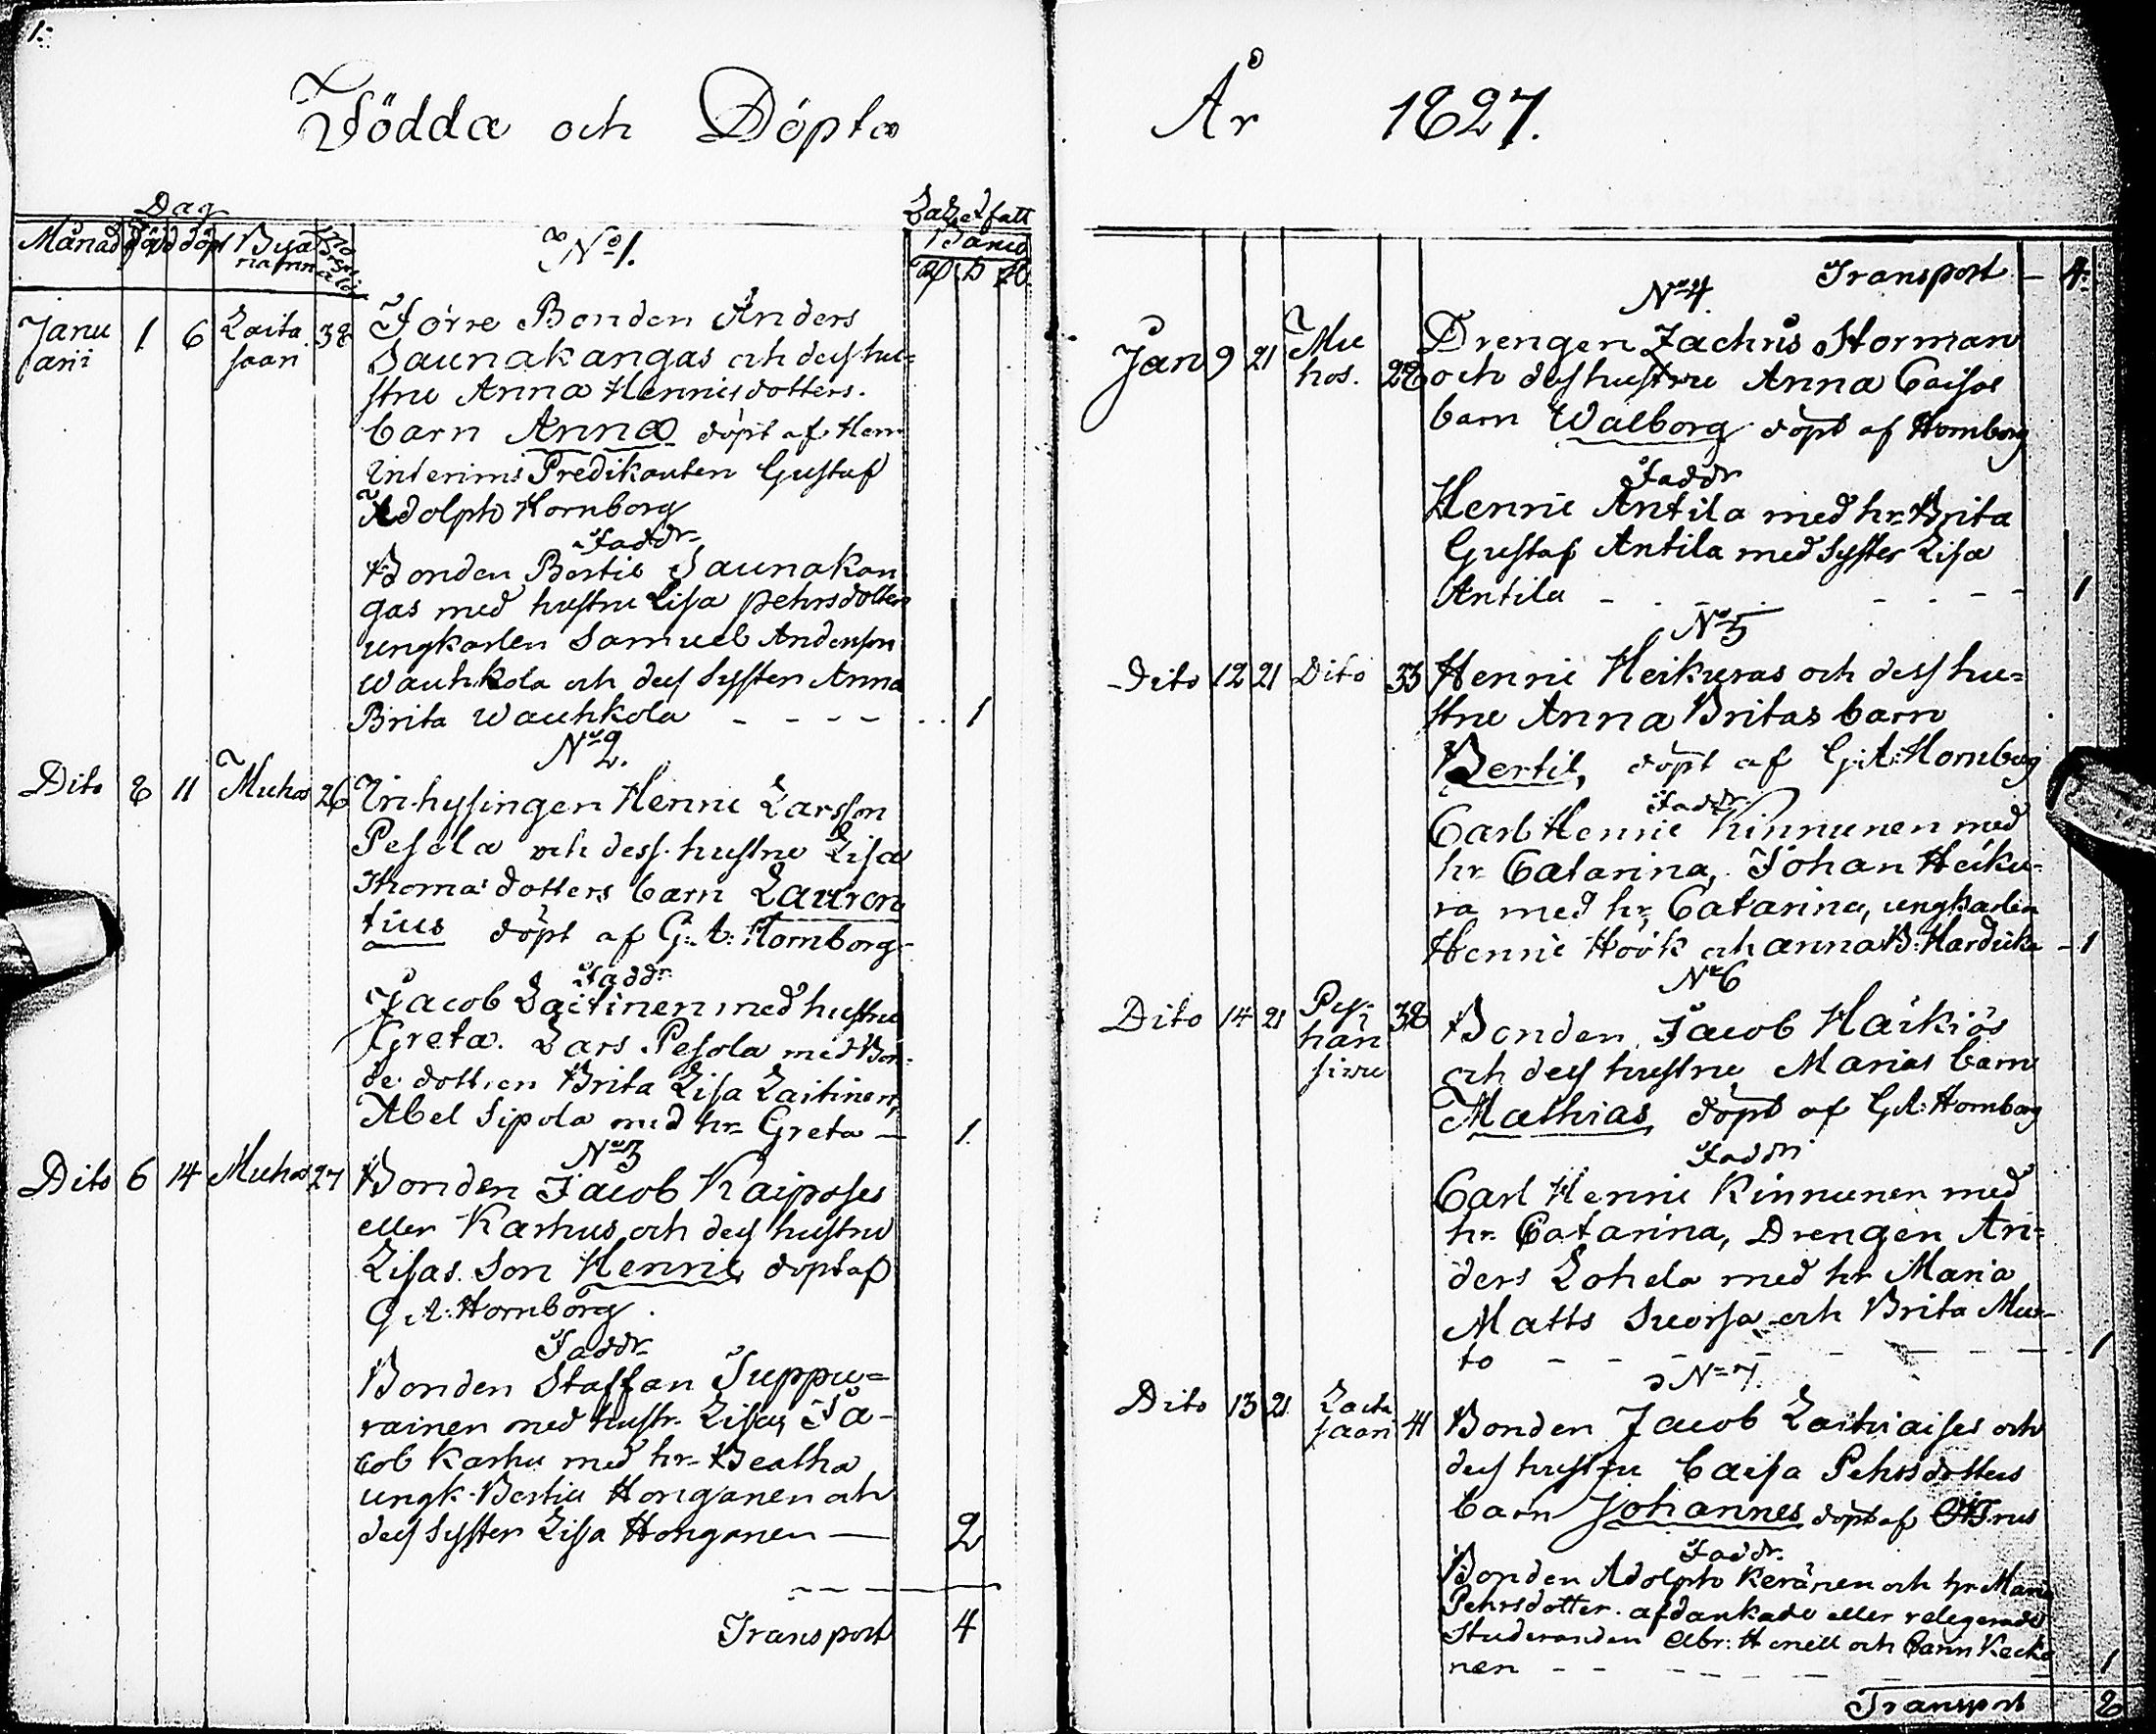 1.
Födda och Döpta
Dag
Månad född döpt Byanamn N:o 1.
Januarii 1 6 Laitasaari 38 Förre Bonden Anders
Saunakangas och dess hu=
stru Anna Henrisdotters.
barn Anna döpt af Herr
Interims Predikanten Gustaf
Adolph Hornborg
Faddr
Bonden Bertil Saunakan
gas med hustru Lisa Pehrsdotter
ungkarlen Samuel Andersson
Wauhkola och dess Syster Anna
Brita Wauhkola - - - - - . . 1
N:o 2.
Dito 8 11 Muhos 26 Inhysingen Henric Larsson
Pesola och dess hustru Lisa
Thomasdotters barn Lauren
tius döpt af G: A: Hornborg
Faddr
Jacob Laitinen med hustru
Greta. Lars Pesola med Bon-
de dottren Brita Lisa Laitinen,
Abel Sipola med hr Greta — 1.
N:o 3
Dito 6 14 Muhos 27 Bonden Jacob Kaiposes
eller Karhus och dess hustru
Lisas. Son Henric, döpt af
G A: Hornborg.
Faddr
Bonden Staffan Suppu=
rainen med hustr. Lisa, Ja-
cob Karhu med hr Beatha
ungk. Bertil Honganen och
dess Syster Lisa Honganen — 2
Transport 4
År 1827.
Transport – 4:
N:o 4.
Jan 9 21 Muhos. 28 Drengen Zachris Storman
och dess hustru Anna Caisas
barn Walborg döpt af Hornborg
Faddr
Henric Antila med hr Brita
Gustaf Antila med Syster Lisa
Antila - . - . - . - - 1
N:o 5
Dito 12 21 Dito 33 Henric Heikuras och dess hu=
stru Anna Britas barn
Bertil, döpt af G: A: Hornborg
Faddr
Carl Henric Kinnunen med
hr Catarina, Johan Heiku-
ra med hr Catarina, ungkarlen
Henric Höök och Anna B: - 1
N:o 6
Dito 14 21 38 Bonden Jacob Haikiös
och dess hustru Marias barn
Mathias, döpt af G A: Hornborg
Faddr
Carl Henric Kinnunen med
hr Catarina, Drengen An=
ders Lohela med hr Maria
Matts Suorsa och Brita Mur-
to - - - - - - - - 1
N:o 7.
Dito 13 21 Laitasaari 41 Bonden Jacob och
dess hustru Caisa Pehrsdotters
barn Johannes döpt af
Faddr.
Bonden Adolph Keränen och hr Maria
Pehrsdotter. afdankade eller relegerade
Studeranden Abr: och Carin
nen - - - - - 1
Transport 8